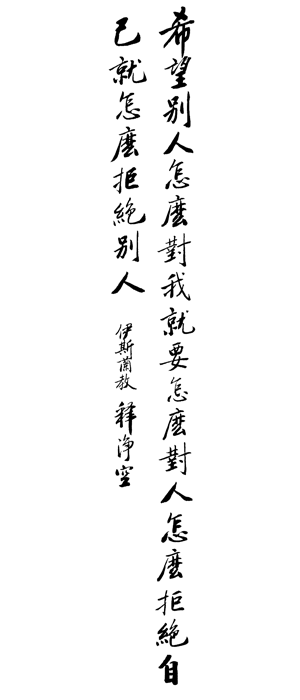 希望別人怎麼對我就要怎麼對人怎麼拒絕自
己就怎麼拒絕別人 伊斯蘭教 釋淨空